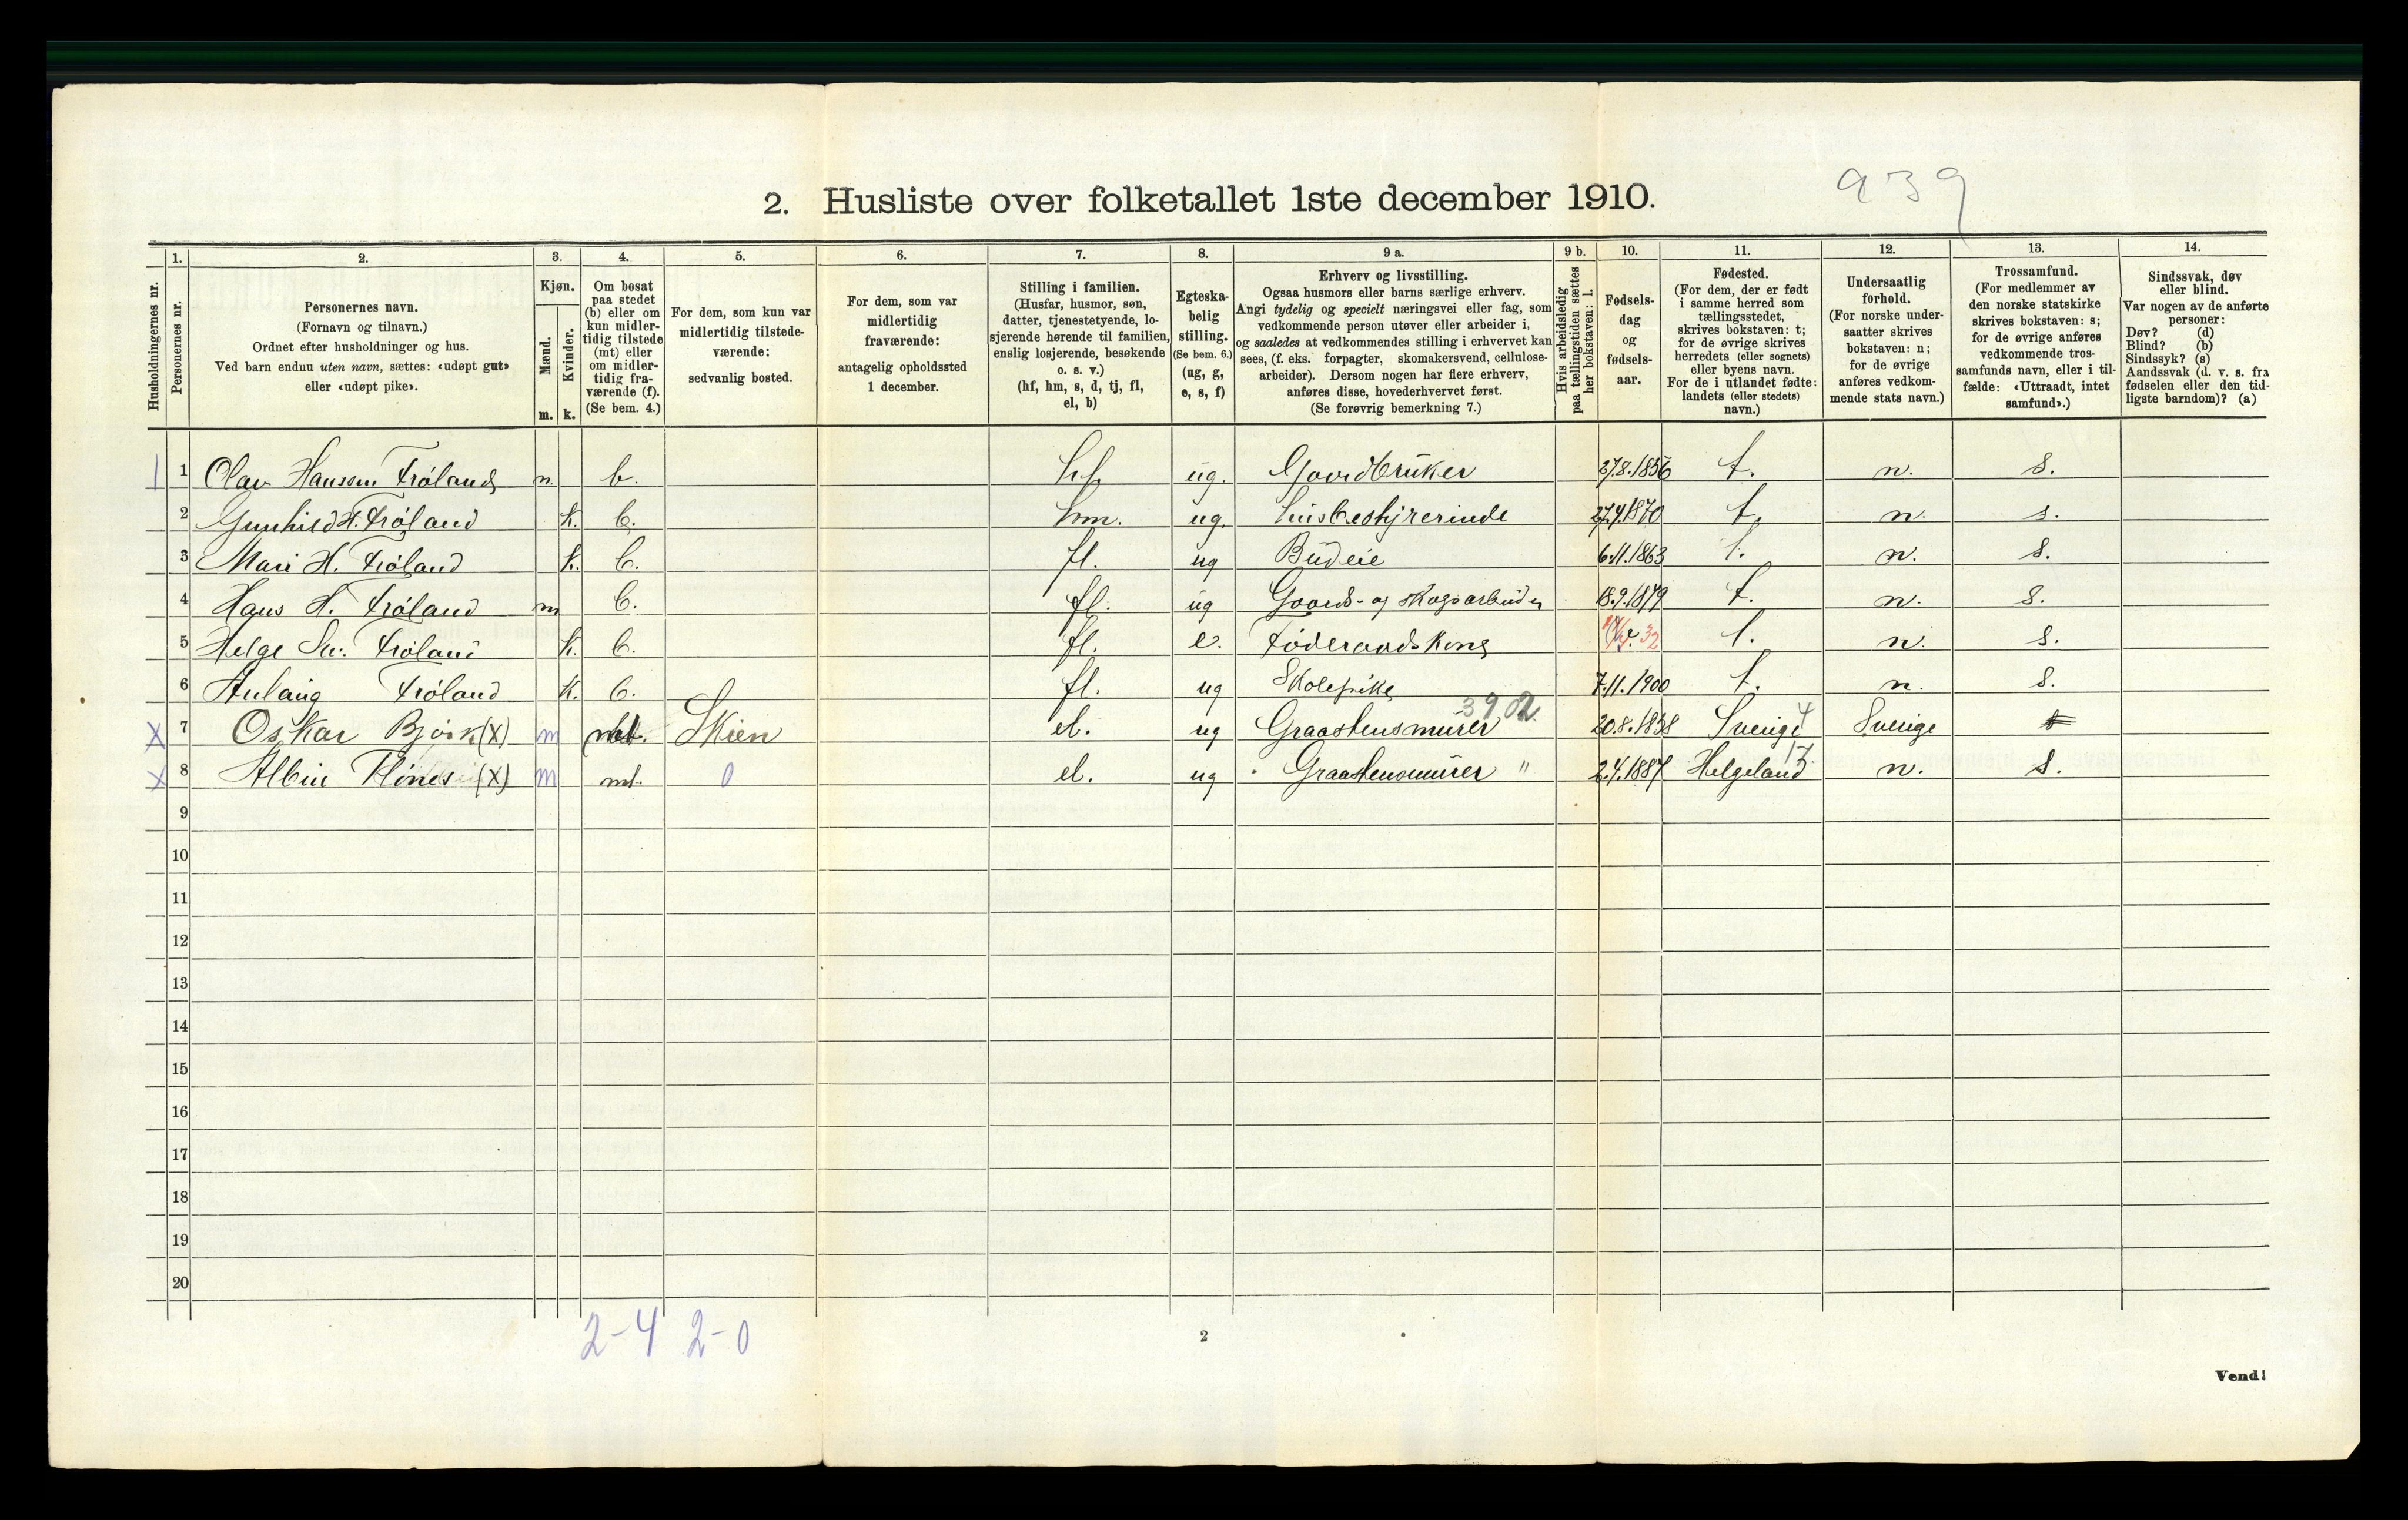 939
2. Husliste over folketallet 1ste december 1910.
Husholdningernes nr.
1.
Personernes nr.
2.
Personernes navn.
(Fornavn og tilnavn.)
Ordnet efter husholdninger og hus.
Ved barn endnu uten navn, sættes: «udøpt gut»
eller «udøpt pike».
3.
Kjøn.
Mænd.
Kvinder.
m. k.
4.
Om bosat
paa stedet
(b) eller om
kun midler-
tidig tilstede
(mt) eller
om midler-
tidig fra-
værende (f).
(Se bem. 4.)
5.
For dem, som kun var
midlertidig tilstede-
værende:
sedvanlig bosted.
6.
For dem, som var
midlertidig
fraværende:
antagelig opholdssted
1 december.
7.
Stilling i familien.
(Husfar, husmor, søn,
datter, tjenestetyende, lo-
sjerende hørende til familien,
enslig losjerende, besøkende
o. s. v.)
(hf, hm, s, d, tj, fl,
el, b)
8.
Egteska-
belig
stilling.
(Se bem. 6.)
(ug, g,
e, s, f)
9 a.
Erhverv og livsstilling.
Ogsaa husmors eller barns særlige erhverv.
Angi tydelig og specielt næringsvei eller fag, som
vedkommende person utøver eller arbeider i,
og saaledes at vedkommendes stilling i erhvervet kan
sees, (f. eks. forpagter, skomakersvend, cellulose-
arbeider). Dersom nogen har flere erhverv,
anføres disse, hovederhvervet først.
(Se forøvrig bemerkning 7.)
9 b.
Hvis arbeidsledig
paa tællingstiden sættes
her bokstaven: l.
10.
Fødsels-
dag
og
fødsels-
aar.
11.
Fødested.
(For dem, der er født
i samme herred som
tællingsstedet,
skrives bokstaven: t;
for de øvrige skrives
herredets (eller sognets)
eller byens navn.
For de i utlandet fødte:
landets (eller stedets)
navn.)
12.
Undersaatlig
forhold.
(For norske under-
saatter skrives
bokstaven: n;
for de øvrige
anføres vedkom-
mende stats navn.)
13.
Trossamfund.
(For medlemmer av
den norske statskirke
skrives bokstaven: s;
for de øvrige anføres
vedkommende tros-
samfunds navn, eller i til-
fælde: «Uttraadt, intet
samfund».)
14.
Sindssvak, døv
eller blind.
Var nogen av de anførte
personer:
Døv? (d)
Blind? (b)
Sindssyk? (s)
Aandssvak (d. v. s. fra
fødselen eller den tid-
ligste barndom)? (a)
1 1 Olav Hansson Frøland m b. hf. ug. Gaardbruker 27.8.1856 t. n. s.
2 Gunhild H. Frøland k. b. hm. ug. husbestyrerinde 27.4.1870 t. n. s.
3 Mari H. Frøland k. b. fl. ug Budeie 6.11.1863 t. n. s.
4 Hans H. Frøland m b. fl. ug Gaards- og skogsarbeider 18.9.1879 t. n. s.
5 Helge Frøland k. b. fl. e. Føderaadskone 32 t. n. s.
6 Aulaug Frøland k. b. fl. ug Skolepike 7.11.1900 t. n. s.
3902
X 7 Oskar Bjørk (X) m mt. Skien el. ug Graastensmurer 20.8.1838 Sverige 4 Sverige
X 8 Albin (X) m mt. 0 el. ug Graastensmurer " 2.4.1887 Helgeland 17 n. s.
9
10
11
12
13
14
15
16
17
18
19
20
2-4 2-0
2
Vend!